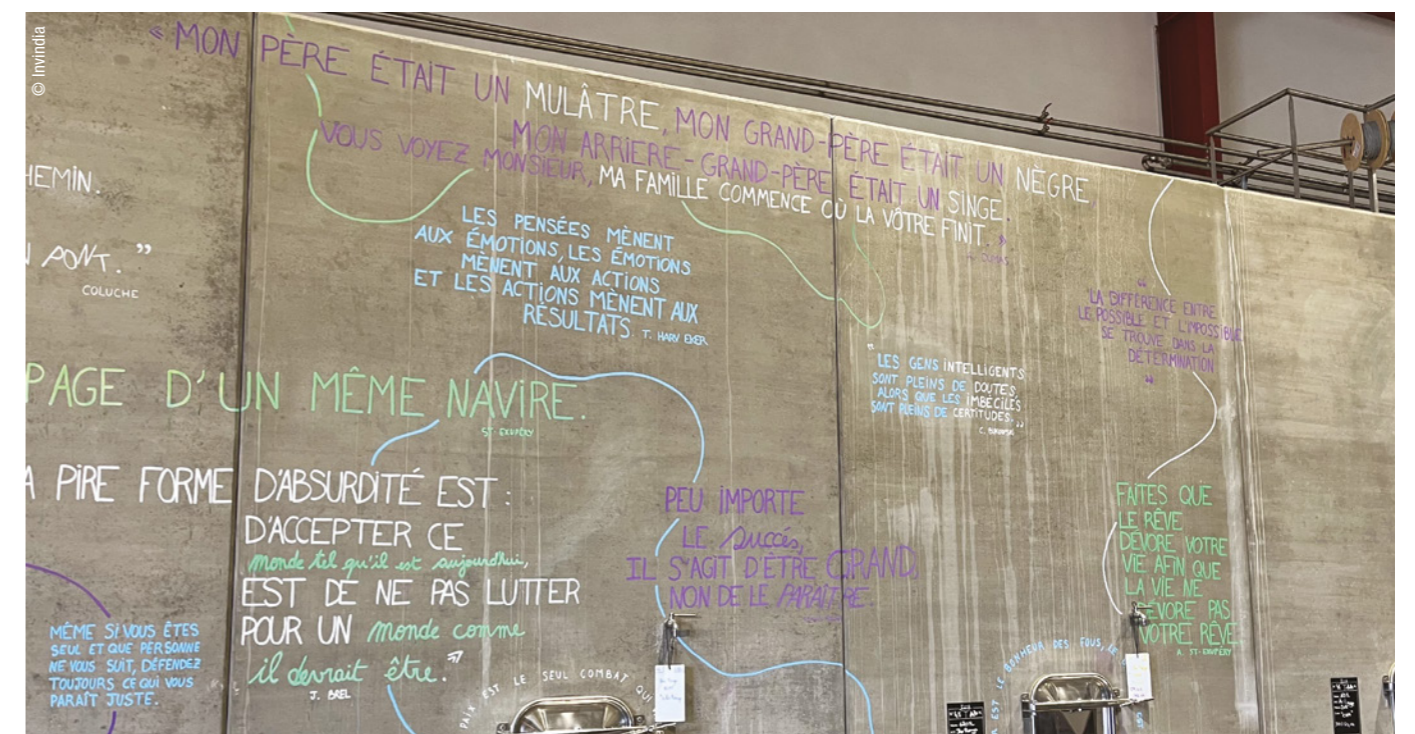 © Invindia
« MON PÈRE ÉTAIT UN MULÂTRE, MON GRAND-PÈRE ÉTAIT UN NÈGRE,
MON ARRIÈRE-GRAND-PÈRE ÉTAIT UN SINGE.
VOUS VOYEZ MONSIEUR, MA FAMILLE COMMENCE OÙ LA VÔTRE FINIT. »
A. DUMAS
HEMIN.
PONT. ”
COLUCHE
LES PENSÉES MÈNENT
AUX ÉMOTIONS, LES ÉMOTIONS
MÈNENT AUX ACTIONS
ET LES ACTIONS MÈNENT AUX
RÉSULTATS. T. HARV EKER
“
LA DIFFÉRENCE ENTRE
LE POSSIBLE ET L'IMPOSSIBLE
SE TROUVE DANS LA
DÉTERMINATION
”
"LES GENS INTELLIGENTS
SONT PLEINS DE DOUTES,
ALORS QUE LES IMBÉCILES
SONT PLEINS DE CERTITUDES."
PAGE D'UN MÊME NAVIRE.
ST-EXUPÉRY
A PIRE FORME D'ABSURDITÉ EST :
D'ACCEPTER CE
monde tel qu'il est aujourd'hui,
EST DE NE PAS LUTTER
POUR UN monde comme
il devrait être."
J. BREL
PEU IMPORTE
LE succés,
IL S'AGIT D'ÊTRE GRAND
NON DE LE PARAÎTRE.
FAITES QUE
LE RÊVE
DÉVORE VOTRE
VIE AFIN QUE
LA VIE NE
DÉVORE PAS
VOTRE RÊVE
A. ST-EXUPÉRY
MÊME SI VOUS ÊTES
SEUL ET QUE PERSONNE
NE VOUS SUIT, DÉFENDEZ
TOUJOURS CE QUI VOUS
PARAÎT JUSTE.
PAIX EST LE SEUL COMBAT QUI
EST LE BONHEUR DES FOUS,